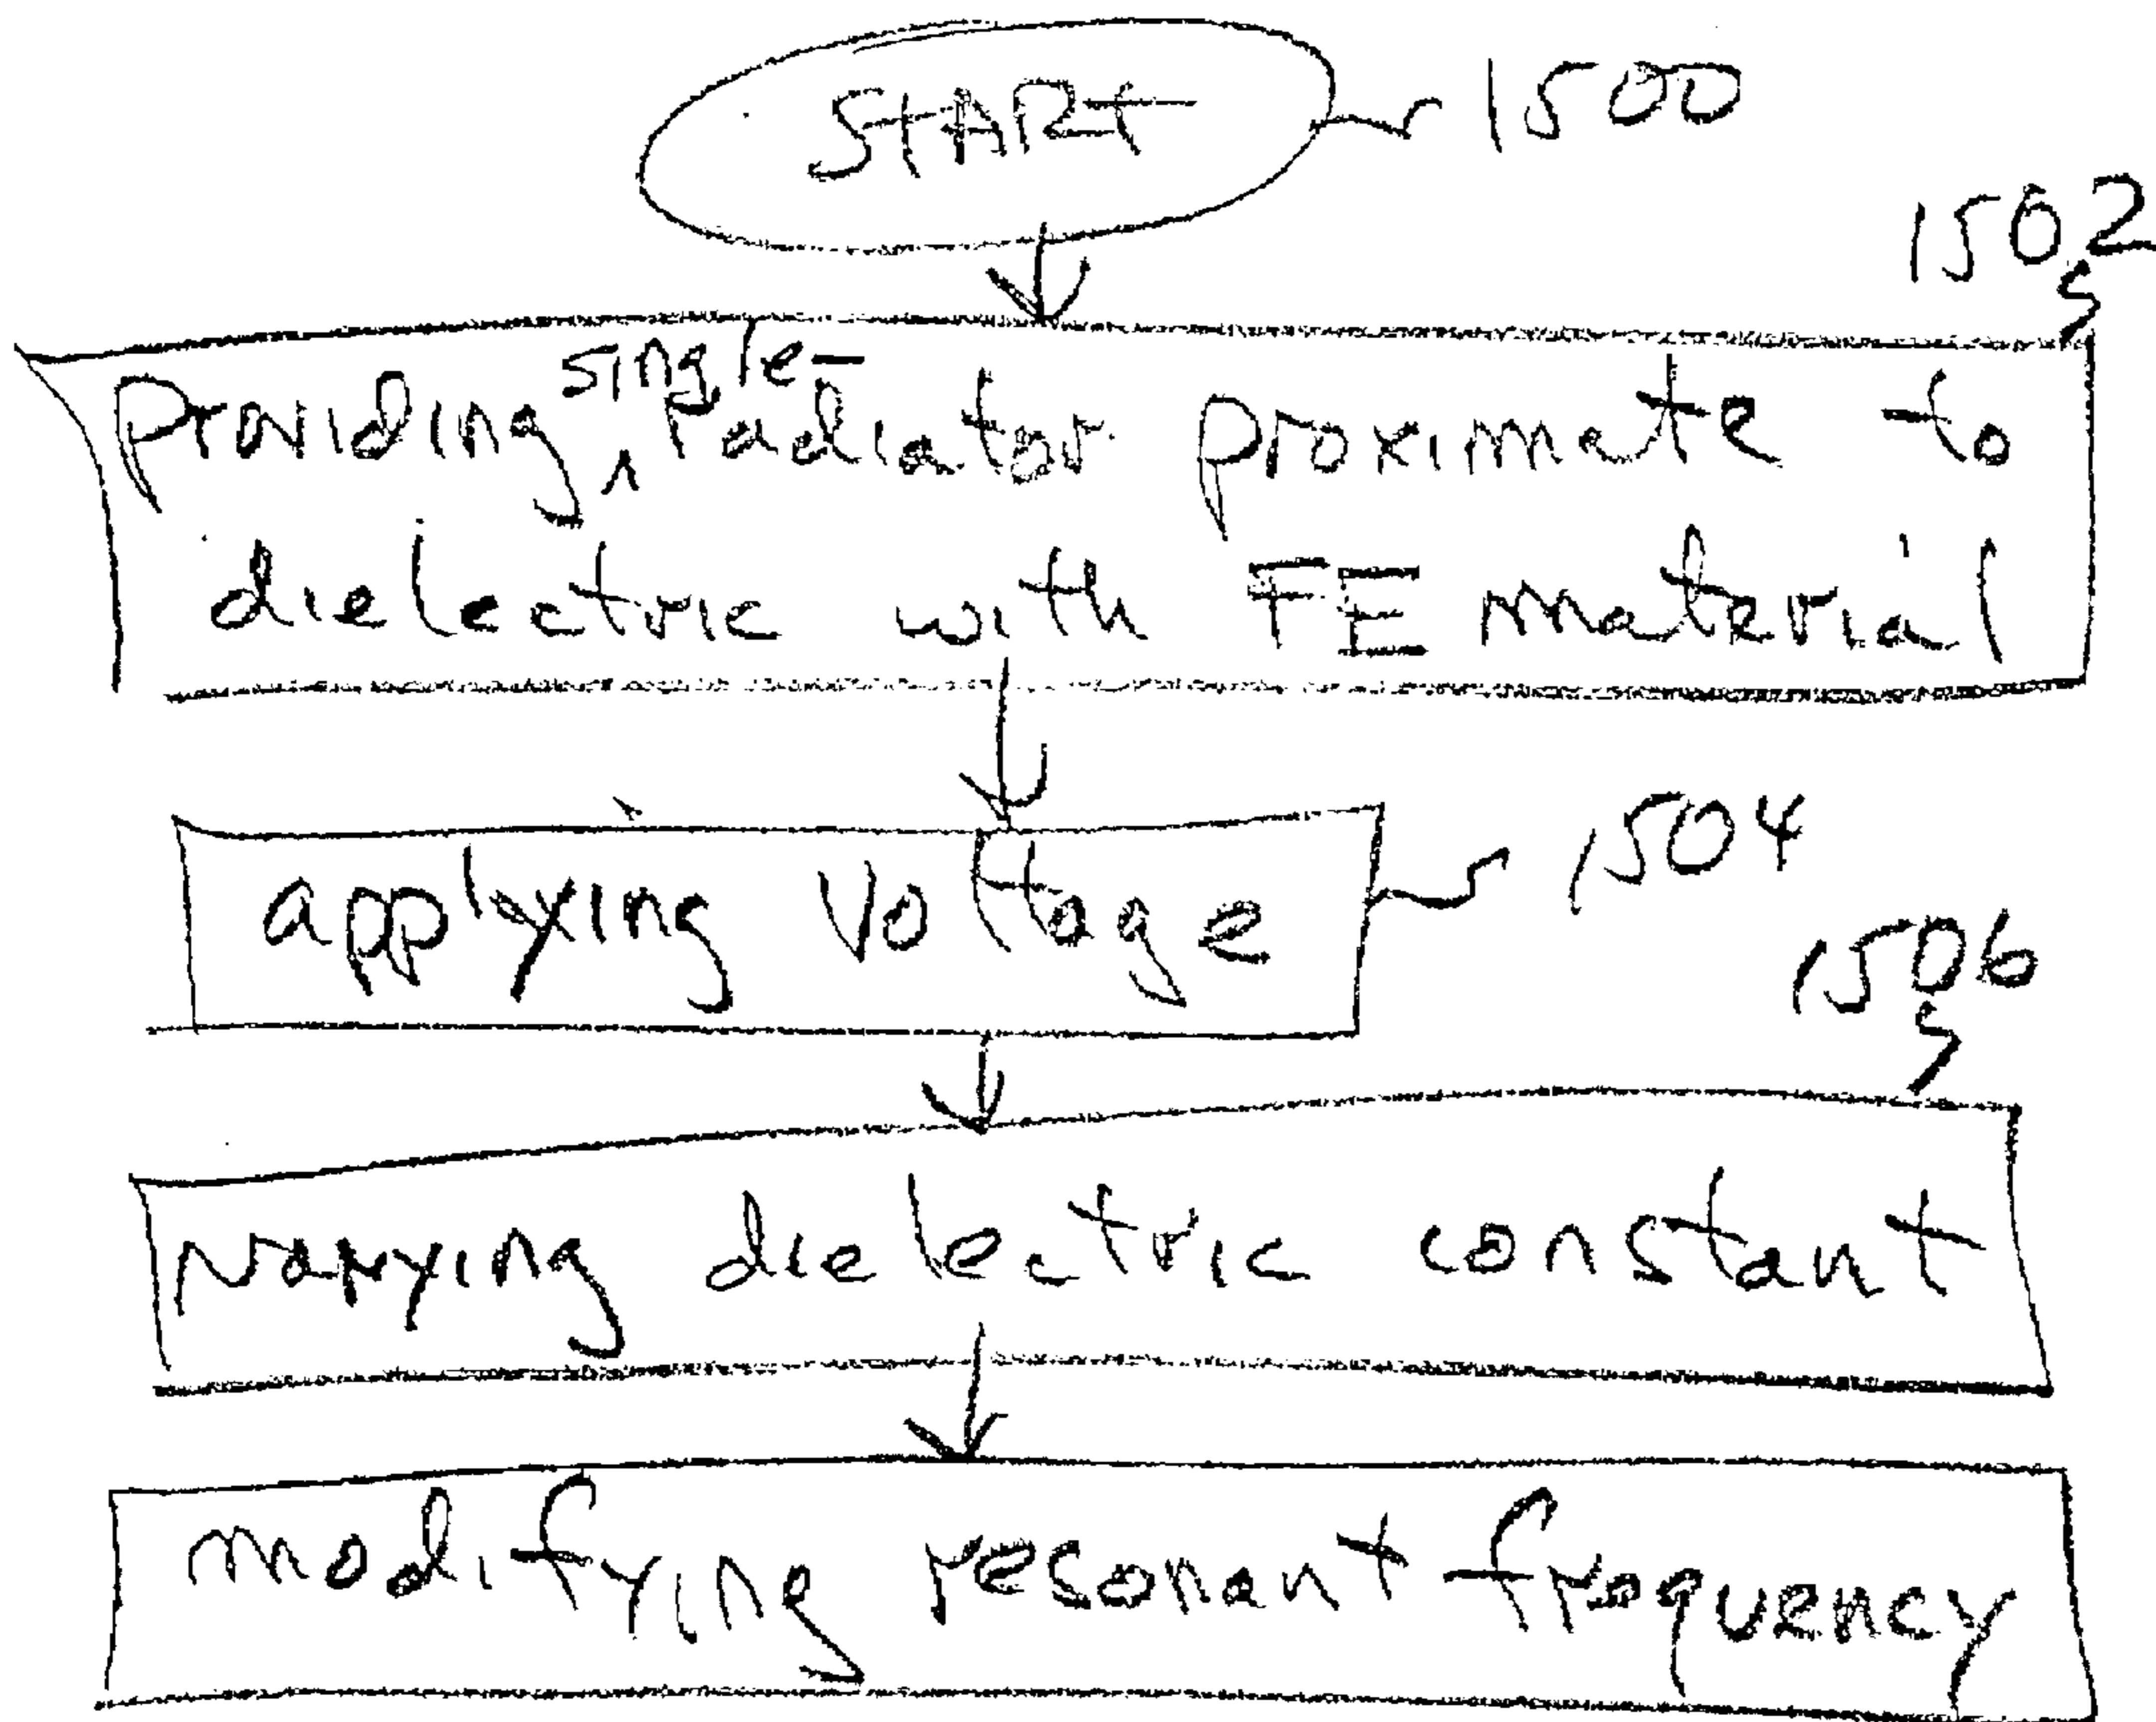 START 1500
1502
single-
Providing ^ radiator proximate to
dielectric with FE material
applying voltage 1504
1506
varying dielectric constant
modifying resonant frequency